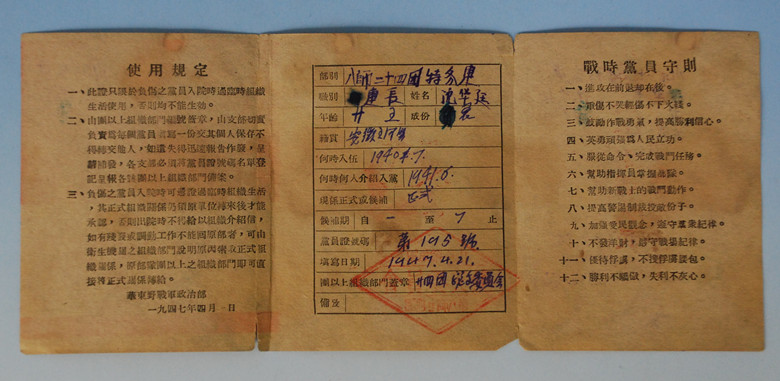 使用規定
一、此證只限於負傷之黨員入院時過臨時組織
生活使用，否則均不能生效。
二、由團以上組織部門編號蓋章，由支部切實
負責為每個黨員者寫一份交其個人保存不
得轉交他人，如遺失得迅速報告作廢，呈
請補發，各支部必須將黨證號碼名單登
記呈報各該團以上組織部門備案。
三、負傷之黨員入院時可憑證過臨時組織生活
，其正式組織關係仍須原單位轉來後才能
承認，否則出院時不得給以組織介紹信，
如有殘廢或調動工作不能回原部者，可由
衛生機關之組織部門說明原因索取正式組
織關係，原部隊團以上之組織部門即可直
接將正式關係轉給。
華東野戰軍政治部
一九四七年四月 日
部別 八師二十四團特務連
職別 連長 姓名
年齡 廿五 成份
籍貫 安徽
何時入伍 1940年.7.
何時何人介紹入黨 1941.6.
現係正式或候補 正式
候補期 自 至 止
黨員證號碼 第195號
填寫日期 1947.4.21.
團以上組織部門蓋章 廿四團 委員会
備攷
戰時黨員守則
一、進攻在前退却在後。
二、輕傷不哭重傷不下火綫。
三、鼓勵作戰勇氣，提高勝利信心。
四、英勇頑強為人民立功。
五、服從命令、完成戰鬥任務。
六、幫助指揮員掌握部隊。
七、幫助新戰士的戰鬥動作。
八、提高警惕制裁投敵份子。
九、加強愛民觀念，遵守羣衆紀律。
十、不發洋財，遵守戰場紀律。
十一、優待俘虜，不搜俘虜腰包。
十二、勝利不驕傲，失利不灰心。